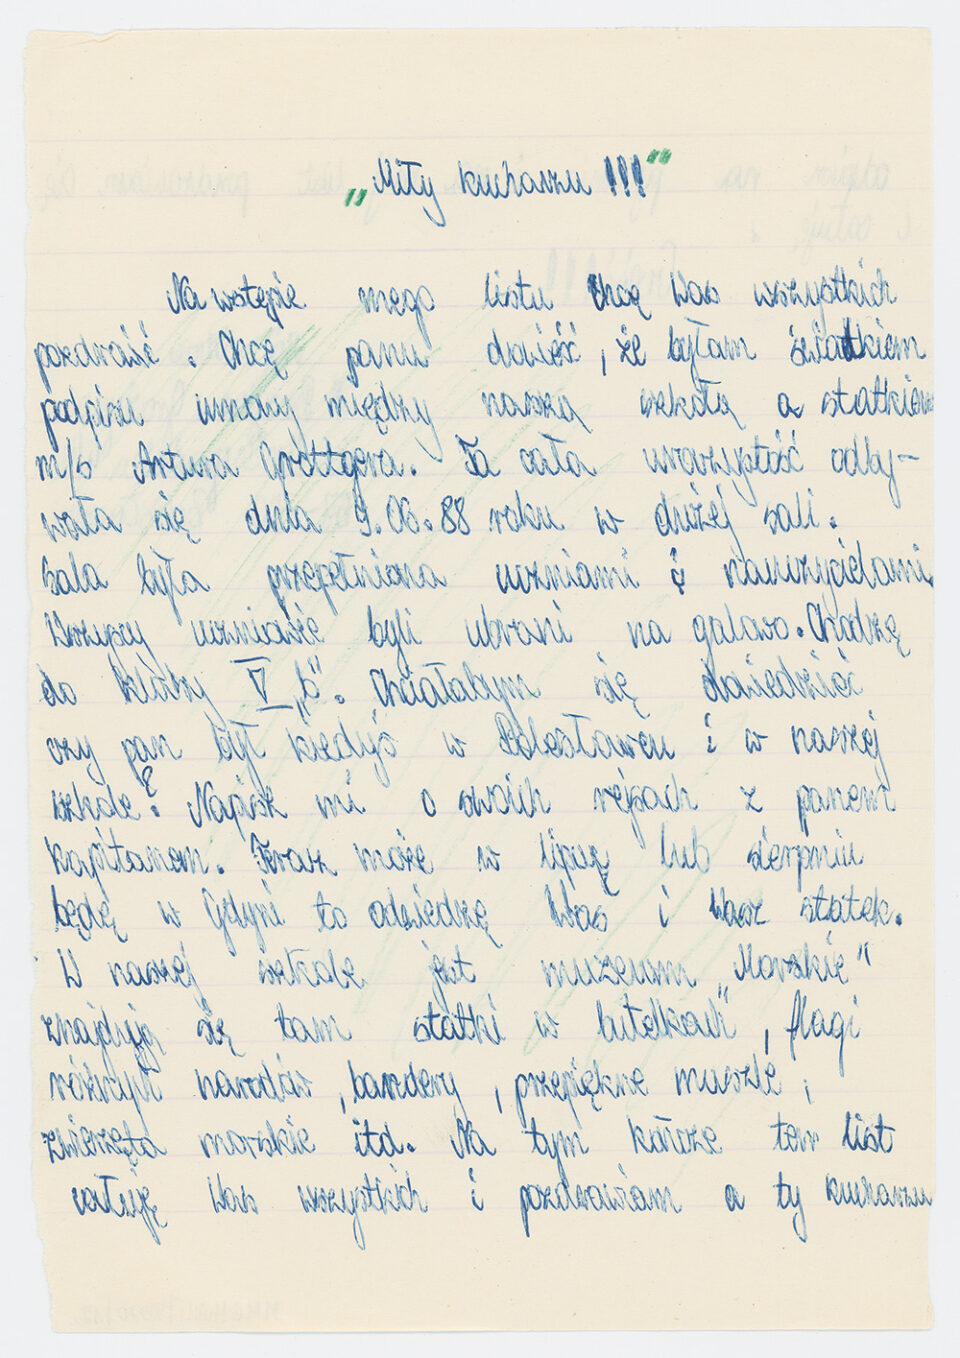 „Miły kucharzu !!!”
Na wstępie mego listu chcę Was wszystkich
pozdrowić. Chcę panu donieść, że byłam świadkiem
podpisu umowy między naszą szkołą a statkiem
m/s Artura Grottgera. Ta cała uroczystość odby-
wała się dnia 9.06.88 roku w dużej sali.
Sala była przepełniona uczniami i nauczycielami.
Wszyscy uczniowie byli ubrani na galowo. Chodzę
do klasy V „b”. Chciałabym się dowiedzieć
czy pan był kiedyś w Bolesławcu i w naszej
szkole? Napisz mi o swoich rejsach z panem
kapitanem. Teraz może w lipcu lub sierpniu
będę w Gdyni to odwiedzę Was i Wasz statek.
W naszej szkole jest muzeum „Morskie”
znajdują się tam statki w butelkach”, flagi
różnych narodów, bandery, przepiękne muszle,
zwierzęta morskie itd. Na tym kończę ten list
całuję Was wszystkich i pozdrawiam a ty kucharzu